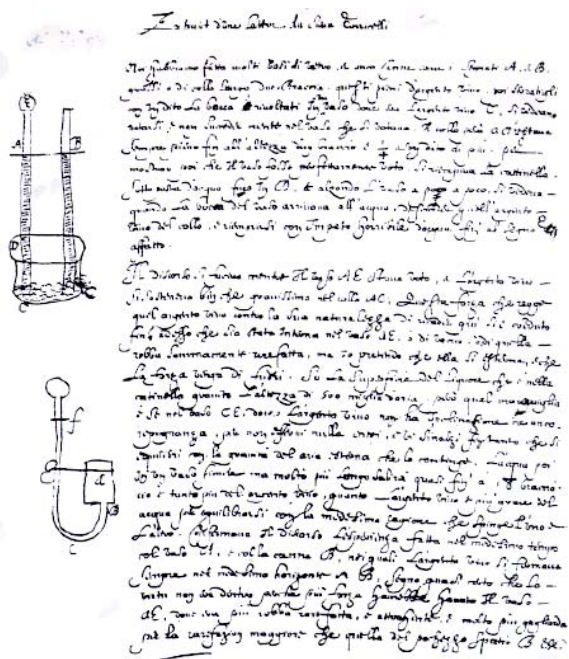 Extrait d'une lettre du Torricelli
Noi habbiamo fatto molti vasi di vetro, come i segnati A. e B.
grossi e di collo lungo due braccia. questi pieni d'argento vivo, poi serratagli
con un dito la bocca e rivoltati in vaso dove era l'argento vivo C, si vedevano
votarsi, e non succeder niente nel vaso che si votava. Il collo però A D restava
sempre pieno fin all'altezza d'un braccio e 1/4 e un dito di più. per
mostrar poi che il vaso fosse perfettamente voto, si riempiva la catinella
sotto d'acqua fino in D, e alzando il vaso a poco a poco, si vedeva
quando la bocca del vaso arrivava all'acqua, descender quell'argento
vivo del collo, e riempirsi con impeto horribile d'acqua fin al segno E
affatto.
Il discorso si faceva mentre il vaso A E stava voto, e l'argento vivo
si sosteneva benche gravissimo nel collo AC. Questa forza che regge
quel argento vivo contro la sua naturalezza di ricader giù si è creduto
fino adesso che sia stata interna nel vaso AE, o di vacuo, o di quella
robba sommamente rarefatta, ma io pretendo che ella sia esterna, e che
la forza venga di fuori. Su la superficie del liquore che è nella
catinella gravita l'altezza di 50 miglia d'aria. però qual maraviglia
è se nel vaso CE, dove l'argento vivo non ha inclinazione ne anco
repugnanza, entri, e s'inalzi fin tanto che si
equilibri con la gravità del aria esterna che lo
in un vaso simile ma molto più lungo salirà quasi fin a braccia
cio è tanto più del argento vivo, quanto l'argento vivo è più grave del
acqua per equilibrarsi con la medesima cagione che spinge l'uno e
l'altro. Confermava il discorso l'esperienza fatta nel medesimo tempo
col vaso A, e colla canna B, nei quali l'argento vivo si fermava
sempre nel medesimo horizonte A B, segno quasi certo che la
virtù non era dentro perche più forza haverebbe havuto il vaso
AE, dove era più robba rarefatta, e attraente, e molto più gagliarda
per la rarefazion maggiore che quella del spatio B
A
B
D
C
E
f
d
B
C